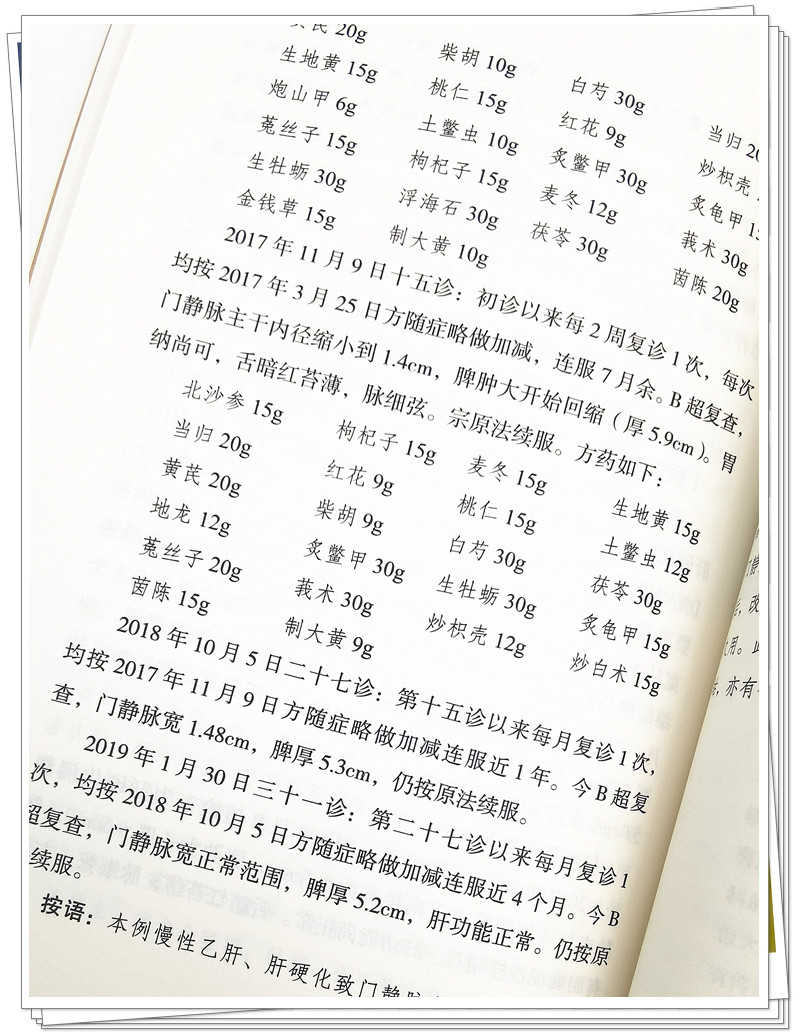 20g 柴胡 10g 白芍 30g 当归
生地黄 15g 桃仁 15g 红花 9g 炒枳壳
炮山甲 6g 土鳖虫 10g 炙鳖甲 30g 炙龟甲
菟丝子 15g 枸杞子 15g 麦冬 12g 莪术 30g
生牡蛎 30g 浮海石 30g 茯苓 30g 茵陈 20g
金钱草 15g 制大黄 10g
2017 年 11 月 9 日十五诊：初诊以来每 2 周复诊 1 次，每次
均按 2017 年 3 月 25 日方随症略做加减，连服 7 月余。B 超复查，
门静脉主干内径缩小到 1.4cm，脾肿大开始回缩（厚 5.9cm）。胃
纳尚可，舌暗红苔薄，脉细弦。宗原法续服。方药如下：
北沙参 15g 枸杞子 15g 麦冬 15g 生地黄 15g
当归 20g 红花 9g 桃仁 15g 土鳖虫 12g
黄芪 20g 柴胡 9g 白芍 30g 茯苓 30g
地龙 12g 炙鳖甲 30g 生牡蛎 30g 炙龟甲 15g
菟丝子 20g 莪术 30g 炒枳壳 12g 炒白术 15g
茵陈 15g 制大黄 9g
2018 年 10 月 5 日二十七诊：第十五诊以来每月复诊 1 次，
均按 2017 年 11 月 9 日方随症略做加减连服近 1 年。今 B 超复
查，门静脉宽 1.48cm，脾厚 5.3cm，仍按原法续服。
2019 年 1 月 30 日三十一诊：第二十七诊以来每月复诊 1
次，均按 2018 年 10 月 5 日方随症略做加减连服近 4 个月。今 B
超复查，门静脉宽正常范围，脾厚 5.2cm，肝功能正常。仍按原
续服。
按语：本例慢性乙肝、肝硬化致门静脉